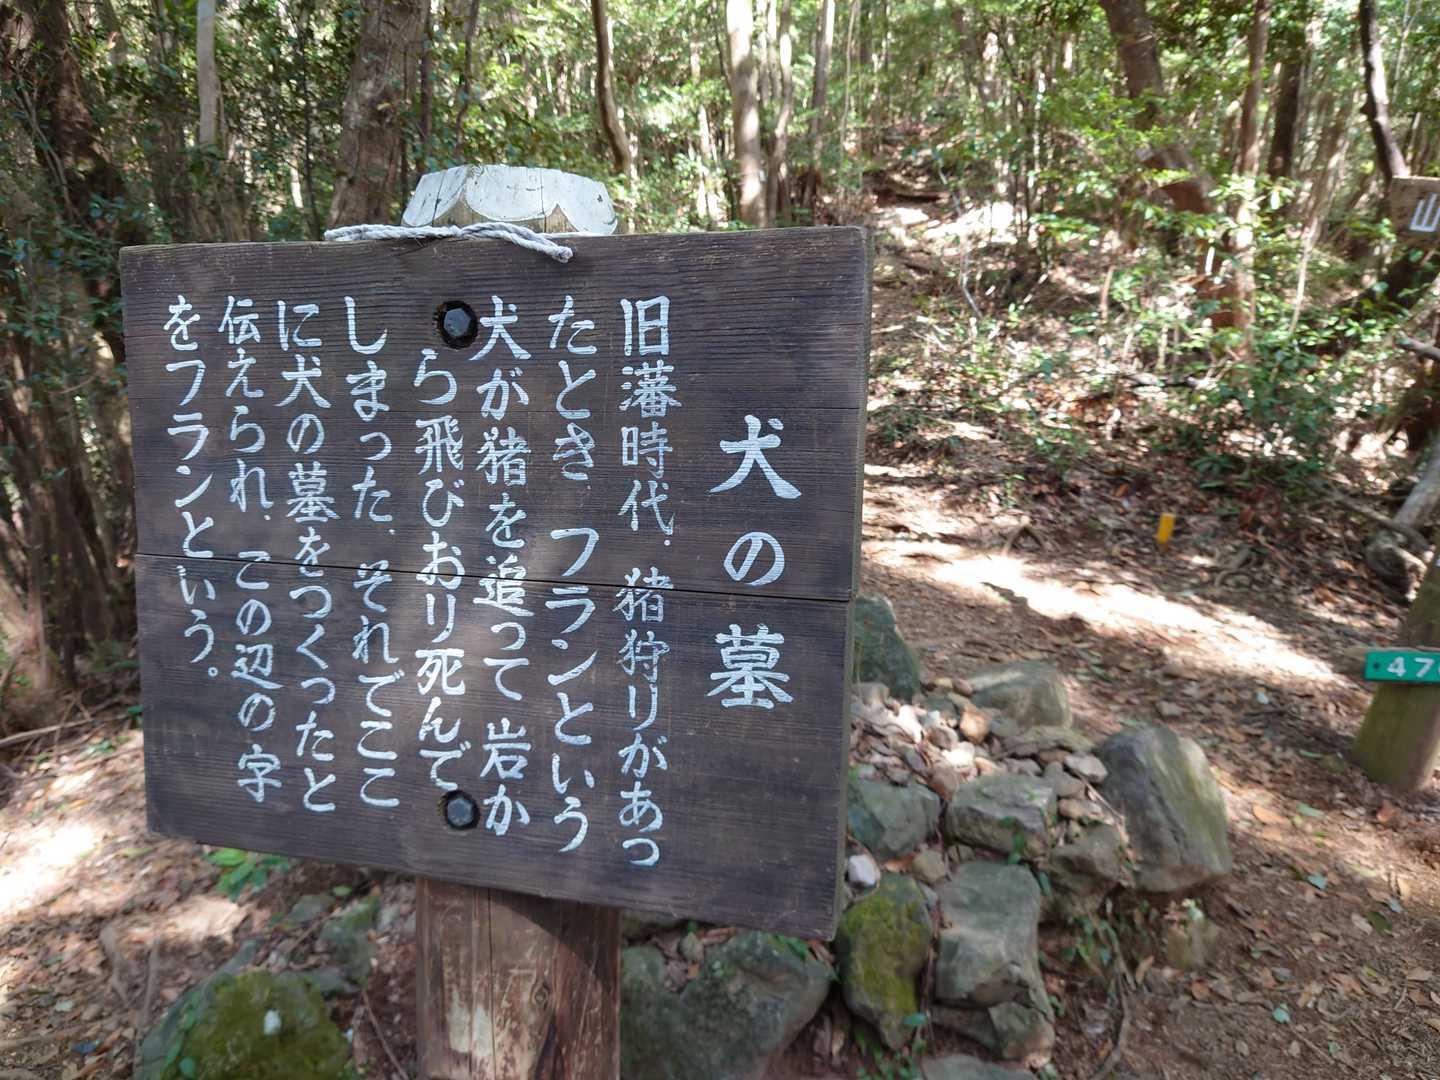 犬の墓
旧藩時代、猪狩りがあっ
たとき フランという
犬が猪を追って岩か
ら飛びおり死んで
しまった、それでここ
に犬の墓をつくったと
伝えられ、この辺の字
をフランという。
山
470